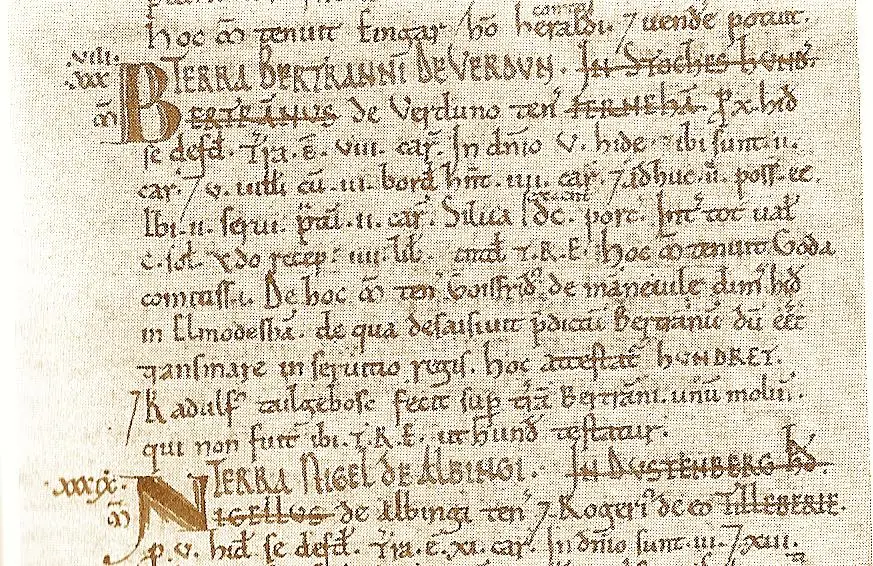 hoc m̃ tenuit Eingar hō heraldi. ⁊ uende potuit.
.VIII.
XXX TERRA BERTRANNI DE VERDVN. IN STOCHES HVND̃.
m̃ BERTRANVS de Verduno ten̄ FERNEHĀ. ꝑ x. hid̄
se defd̄. Tr̄a. ē. viii. car̄. In dn̄io .v. hidę ⁊ ibi sunt .ii.
car̄. ⁊ v. uilli cū .iii. bord̄ hn̄t .iiii. car̄. ⁊ adhuc .ii. poss̄. ee.
Ibi .ii. serui. p̄tū .ii. car̄. Silua dc. porc̄. Int̄ tot̄ ual̄
c. sol. Q̄do recep̄: iiii. lib̄. T.R.E: hoc m̃ tenuit Goda
comitissa. De hoc m̃ ten̄ Goisfrid' de maneiuile dim̄ hid̄
in Elmodeshā. de qua desaisiuit p̄dictū Bertranū dū eēt
transmare in seruitio regis. hoc attestat̄ HVNDRET.
⁊ Radulf' tailgebosc fecit sup̄ tr̄a Bertrani. unū molin̄.
qui non fuit ibi. T.R.E. ut hund̄ testatur.
XXXIX. TERRA NIGEL DE ALBINGI. IN DVSTENBERG HD̄.
m̃ NIGELLVS de Albingi ten̄ ⁊ Rogeri' de eo TILLEBERIE.
p. v. hid̄ se defd̄. Tr̄a. ē. xi. car̄. In dn̄io sunt .iii. ⁊ xiii.